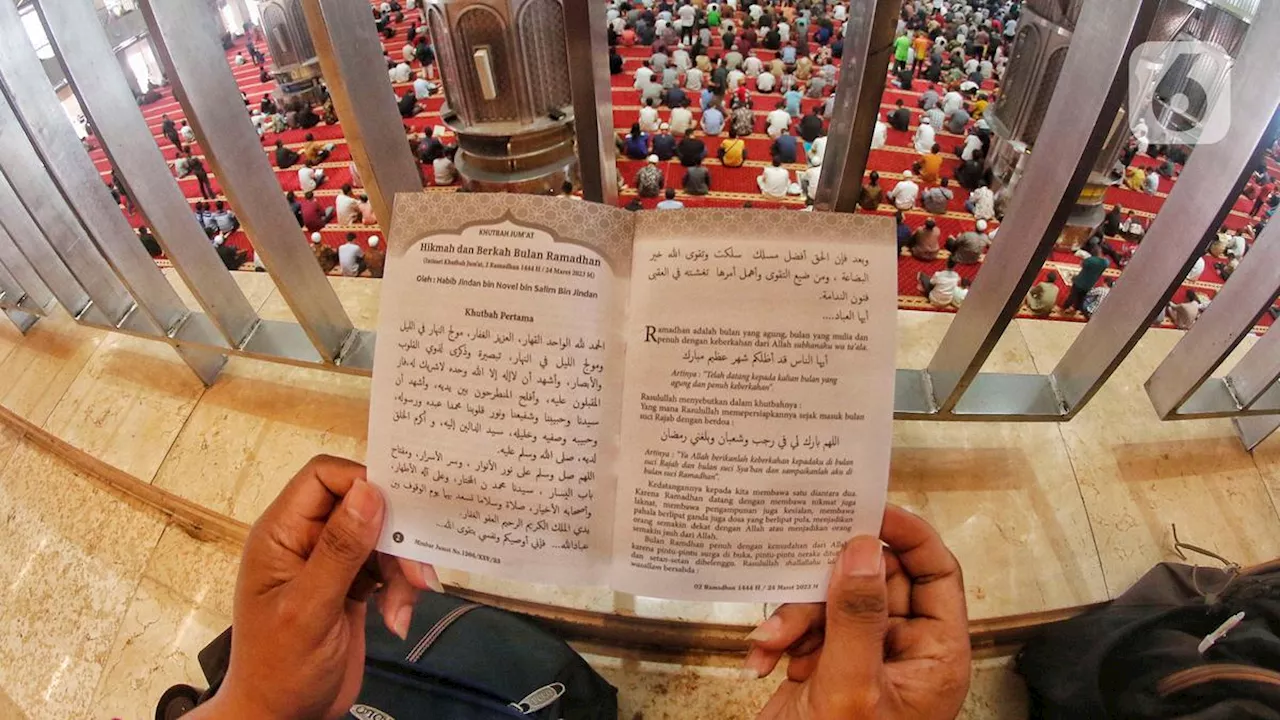 KHUTBAH JUM'AT
Hikmah dan Berkah Bulan Ramadhan
(Intisari Khutbah Jum'at, 2 Ramadhan 1444 H / 24 Maret 2023 M)
Oleh : Habib Jindan bin Novel bin Salim Bin Jindan
Khutbah Pertama
الحمد لله الواحد القهار، العزيز الغفار، مولج النهار في الليل
ومولج الليل في النهار، تبصرة وذكرى لذوي القلوب
والأبصار، وأشهد أن لاإله إلا الله وحده لاشريك له،فاز
المقبلون عليه، وأفلح المنطرحون بين يديه، وأشهد أن
سيدنا وحبيبنا وشفيعنا ونور قلوبنا محمدا عبده ورسوله،
وحبيبه وصفيه وخليله، سيد الدالين إليه، و أكرم الخلق
لديه، صلى الله وسلم عليه.
اللهم صل وسلم على نور الأنوار ، وسر الأسرار، ومفتاح
باب اليسار ، سيدنا محمد ن المختار، وعلى آله الأطهار،
وأصحابه الأخيار، صلاة وسلاما نسعد بها يوم الوقوف بين
يدي الملك الكريم الرحيم العفو الغفار.
عبادالله... فإني أوصيكم ونفسي بتقوى الله...
2
Mimbar Jumat No.
وبعد فإن الحق أفضل مسلك سلكت وتقوى الله خير
البضاعة ، ومن ضيع التقوى وأهمل أمرها تغشته في العقبى
فنون الندامة.
أيها العباد....
Ramadhan adalah bulan yang agung, bulan yang mulia dan
penuh dengan keberkahan dari Allah subhanahu wa ta'ala.
أيها الناس قد أظلكم شهر عظيم مبارك
Artinya : "Telah datang kepada kalian bulan yang
agung dan penuh keberkahan".
Rasulullah menyebutkan dalam khutbahnya :
Yang mana Rasulullah memepersiapkannya sejak masuk bulan
suci Rajab dengan berdoa :
اللهم بارك لي في رجب وشعبان وبلغني رمضان
Artinya : "Ya Allah berikanlah keberkahan kepadaku di bulan
suci Rajab dan bulan suci Sya'ban dan sampaikanlah aku di
bulan suci Ramadhan".
Kedatangannya kepada kita membawa satu diantara dua.
Karena Ramadhan datang dengan membawa nikmat juga
laknat, membawa pengampunan juga kesialan, membawa
pahala berlipat ganda juga dosa yang berlipat pula, menjadikan
orang semakin dekat dengan Allah atau menjadikan orang
semakin jauh dari Allah.
Bulan Ramdhan penuh dengan kemudahan dari Allah
karena pintu-pintu surga di buka, pintu-pintu neraka
dan setan-setan dibelenggu. Rasulullah shallallahu
wasallam bersabda :
02 Ramadhan 1444 H / 24 Maret 2023 M
6